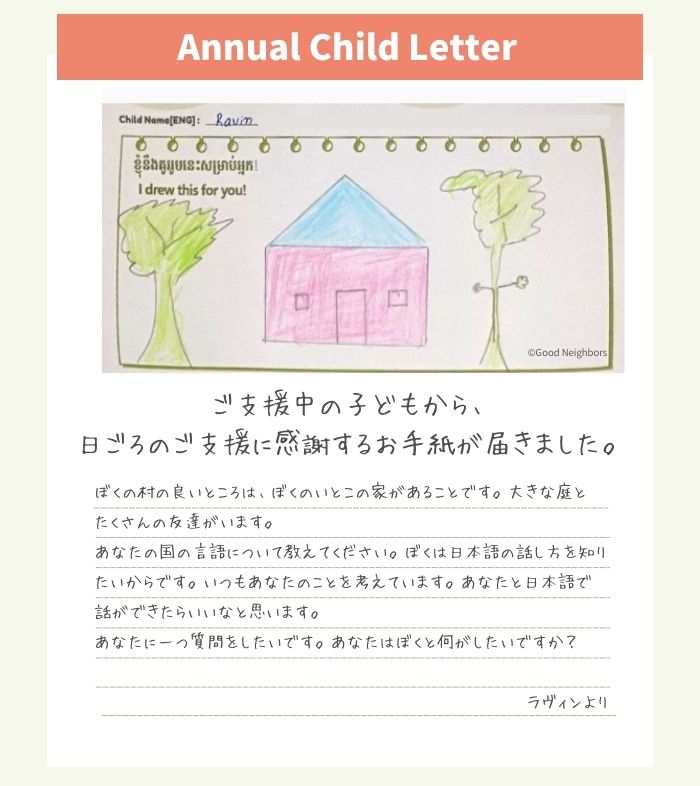 Annual Child Letter
Child Name[ENG] : Ravin
ខ្ញុំនឹងគូររូបនេះសម្រាប់អ្នក!
I drew this for you!
©Good Neighbors
ご支援中の子どもから、
日ごろのご支援に感謝するお手紙が届きました。
ぼくの村の良いところは、ぼくのいとこの家があることです。大きな庭と
たくさんの友達がいます。
あなたの国の言語について教えてください。ぼくは日本語の話し方を知り
たいからです。いつもあなたのことを考えています。あなたと日本語で
話ができたらいいなと思います。
あなたに一つ質問をしたいです。あなたはぼくと何がしたいですか？
ラヴィンより